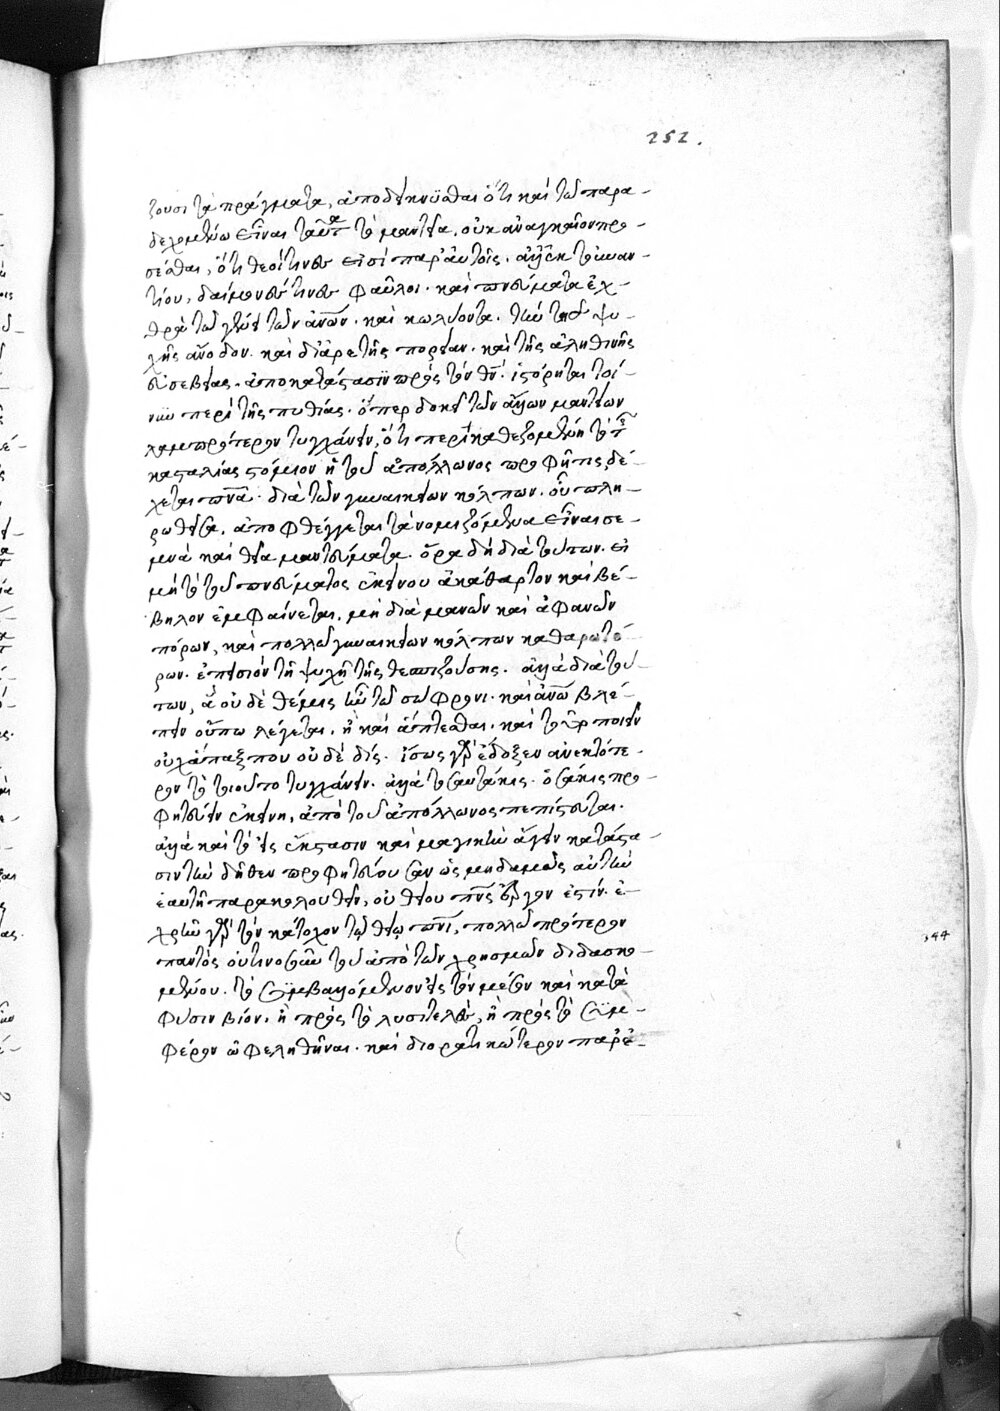 252.
ζουσι τὰ πράγματα, ἀποδείκνυσθαι ὅτι καὶ τῷ παρα-
δεχομένῳ εἶναι ταῦτα τὰ μαντεῖα, οὐκ ἀναγκαῖον προ-
σέσθαι, ὅτι θεοί τινες εἰσὶ παρ' αὐτοῖς. ἀλλ' ἐκ τοῦ ἐναν-
τίου, δαίμονές τινες φαῦλοι. καὶ πνεύματα ἐχ-
θρὰ τῷ γένει τῶν ἀνων. καὶ κωλύοντα τὴν τῆς ψυ-
χῆς ἄνοδον. καὶ δι' ἀρετῆς πορείαν. καὶ τῆς ἀληθινῆς
εὐσεβείας. ἀποκατάστασιν πρὸς τὸν θν. ἱστόρηται τοί-
νυν περὶ τῆς πυθίας. ὅπερ δοκεῖ τῶν ἄλλων μαντείων
λαμπρότερον τυγχάνειν, ὅτι περικαθεζομένη τὸ τῆς
κασταλίας στόμιον ἡ τοῦ ἀπόλλωνος προφῆτις, δέ-
χεται πνα. διὰ τῶν γυναικείων κόλπων. οὗ πλη-
ρωθεῖσα, ἀποφθέγγεται τὰ νομιζόμενα εἶναι σε-
μνὰ καὶ θεῖα μαντεύματα. ὅρα δὴ διὰ τούτων. εἰ
μὴ τὸ τοῦ πνεύματος ἐκείνου ἀκάθαρτον καὶ βέ-
βηλον ἐμφαίνεται. μὴ διὰ μανῶν καὶ ἀφανῶν
πόρων, καὶ πολλῷ γυναικείων κόλπων καθαρωτέ-
ρων. ἐπεισιὸν τῇ ψυχῇ τῆς θεσπιζούσης. ἀλλὰ διὰ τού-
των, ἃ οὐδὲ θέμις ἦν τῷ σώφρονι. καὶ ἀνω βλέ-
πειν οὔπω λέγεται. ἢ καὶ ἅπτεσθαι. καὶ τοῦτο ποιεῖν
οὐχ ἅπαξ που οὐδὲ δίς. ἴσως γὰρ ἔδοξεν ἀνεκτότε-
ρον τὸ τοιοῦτο τυγχάνειν. ἀλλὰ τοσαυτάκις. ὁσάκις προ-
φητεύειν ἐκείνη, ἀπὸ τοῦ ἀπόλλωνος πεπίστευται.
ἀλλὰ καὶ τὸ εἰς ἔκστασιν καὶ μανικὴν ἄγειν κατάστα-
σιν τὴν δῆθεν προφητεύουσαν ὡς μηδαμῶς αὐτὴν
ἑαυτῇ παρακολουθεῖν, οὐ θείου πνς ἔργον ἐστίν. ἐ-
χρῆν γὰρ τὸν κάτοχον τῷ θείῳ πνι, πολλῷ πρότερον
παντὸς οὑτινοσοῦν τοῦ ἀπὸ τῶν χρησμῶν διδασκο-
μένου. τὸ συμβαλλόμενον εἰς τὸν μέσον καὶ κατὰ
φύσιν βίον. ἢ πρὸς τὸ λυσιτελές, ἢ πρὸς τὸ συμ-
φέρον ὠφεληθῆναι. καὶ διορατικώτερον παρ' ἐ-